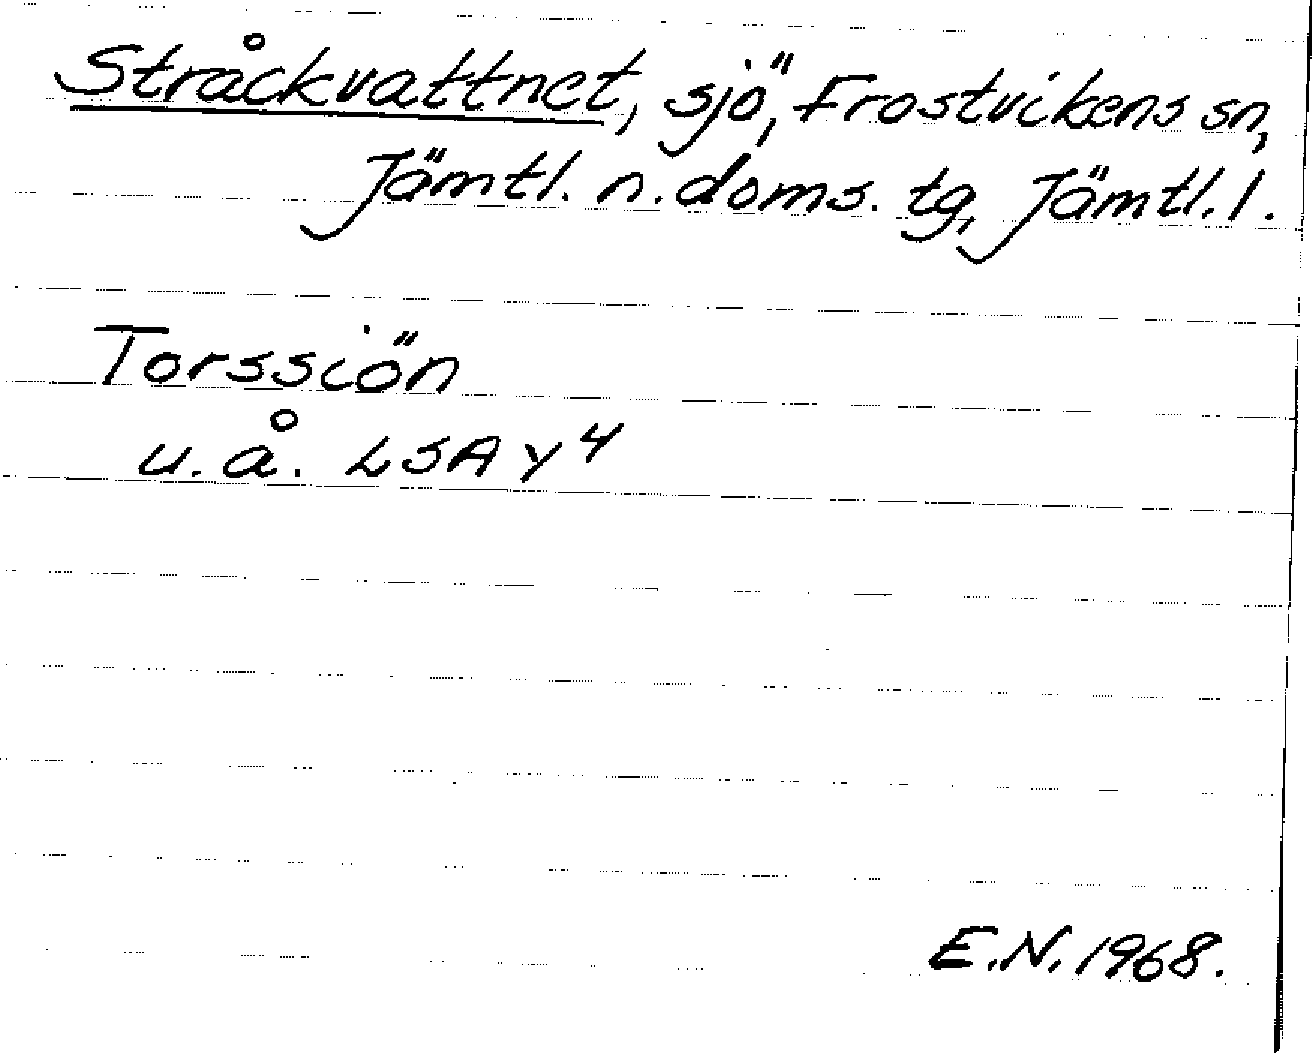 Stråckvattnet, sjö, Frostvikens sn,
Jämtl. n. doms. tg, Jämtl. l.
Torssiön
u. å. LSA Y4
E.N. 1968.